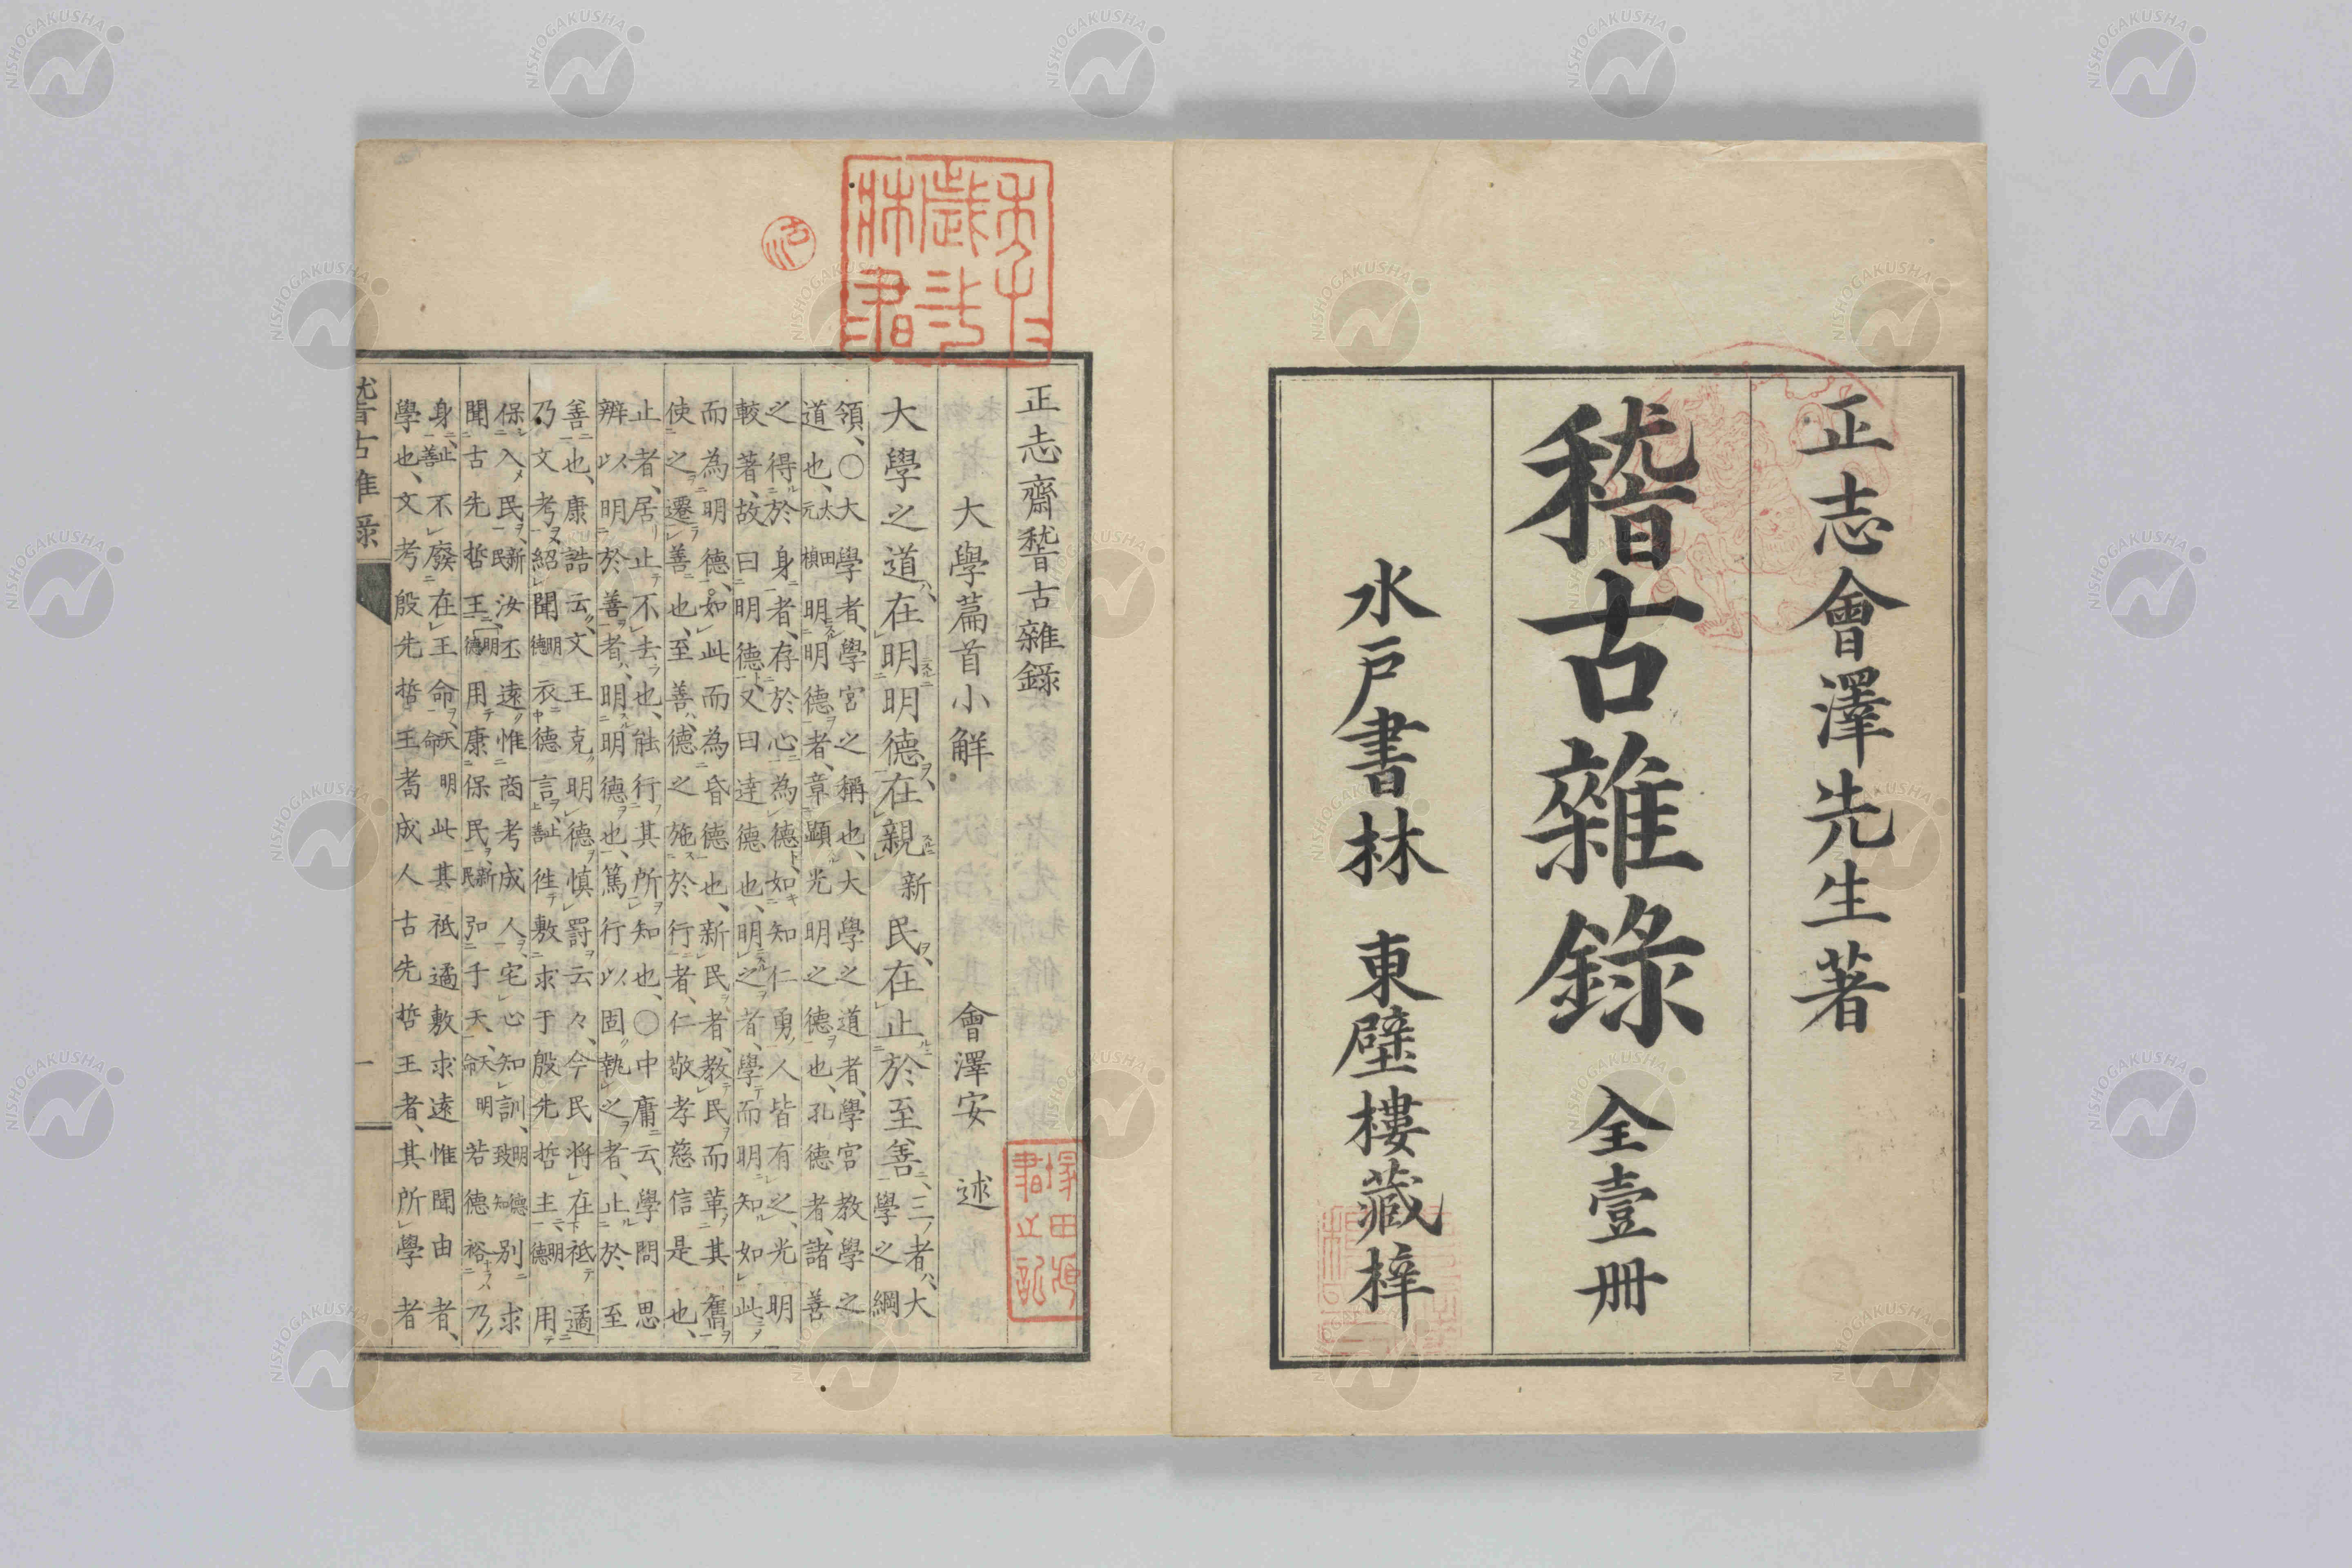 正志會澤先生著
稽古雜錄 全壹冊
水戸書林 東壁樓藏梓
正志齋稽古雜錄
大學篇首小解 會澤安 述
大學之道在明明德在親新民在止於至善三者大
學之綱
領○大學者學宮之稱也大學之道者學宮教學之
道也大元田楨明明德者章顯光明之德也孔德者諸善
之得於身者存於心為德如知仁勇人皆有之光明
較著故曰明德又曰達德也明之者學而明知如此
而為明德如此而為昏德也新民者教民而革其舊
使之遷善也至善德之施於行者仁敬孝慈信是也
止者居止不去也能行其所知也○中庸云學問思
辨以明於善者明明德也篤行以固執之者止於至
善也康誥云文王克明德慎罰云々今民將在祗遹
乃文考紹聞明德衣德言止善往敷求于殷先哲王明德用
保乂民新民汝丕遠惟商考成人宅心知訓明德致知別求
聞古先哲王明德用康保民新民弘于天天命明若德裕乃
身止善不廢在王命天命明此其祗遹敷求遠惟聞由者
學也文考殷先哲王耇成人古先哲王者其所學者
稽古雜錄
一
NISHOGAKUSHA